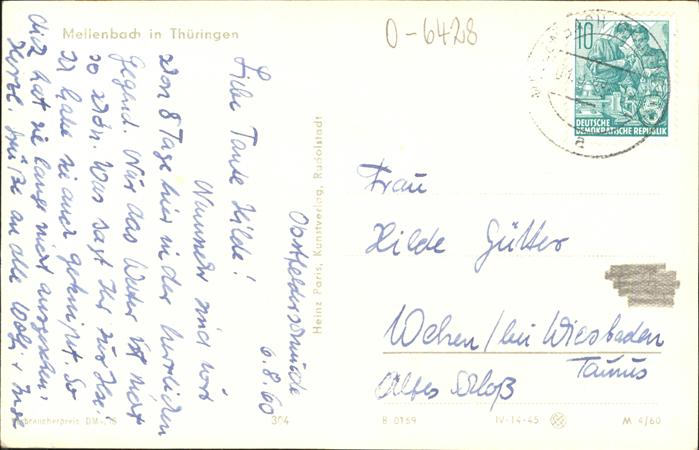 Mellenbach in Thüringen
O-6428
Obstfelderschmiede
6.8.60
Liebe Tante Hilde!
Nunmehr sind wir
schon 8 Tage hier in der herrlichen
Gegend. Nur das Wetter ist nicht
so schön. Was sagt Ihr zur
Ich habe sie auch geknipst. So
dick hat sie lange nicht ausgesehen.
Herzl. Grüße an alle Wolfg. + Inge
Heinz Paris, Kunstverlag, Rudolstadt
10
DEUTSCHE
DEMOKRATISCHE REPUBLIK
a
Frau
Hilde Gütter
Wehen / bei Wiesbaden
Taunus
Altes Schloß
Verbraucherpreis DM -,15
304
B 0159
IV-14-45
M 4/60